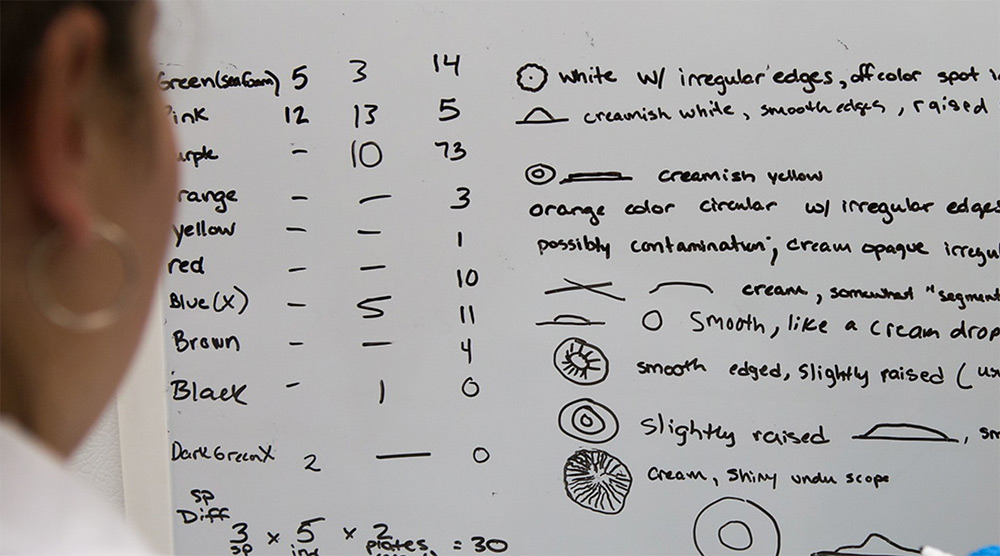 Green(seafoam) 5 3 14 white w/ irregular edges, off color spot
ink 12 13 5 creamish white, smooth edges, raised
urple - 10 73
creamish yellow
range - — 3 orange color circular w/ irregular edges
yellow - — 1 possibly contamination; cream opaque irregul
red - — 10 cream, somewhat "segment
Blue(X) - 5 11 smooth, like a cream drop
Brown - — 4 smooth edged, slightly raised (us
Black - 1 0
slightly raised , sm
Dark Green X 2 — 0 cream, shiny under scope
sp
Diff
3 x 5 x 2 = 30
sp plates